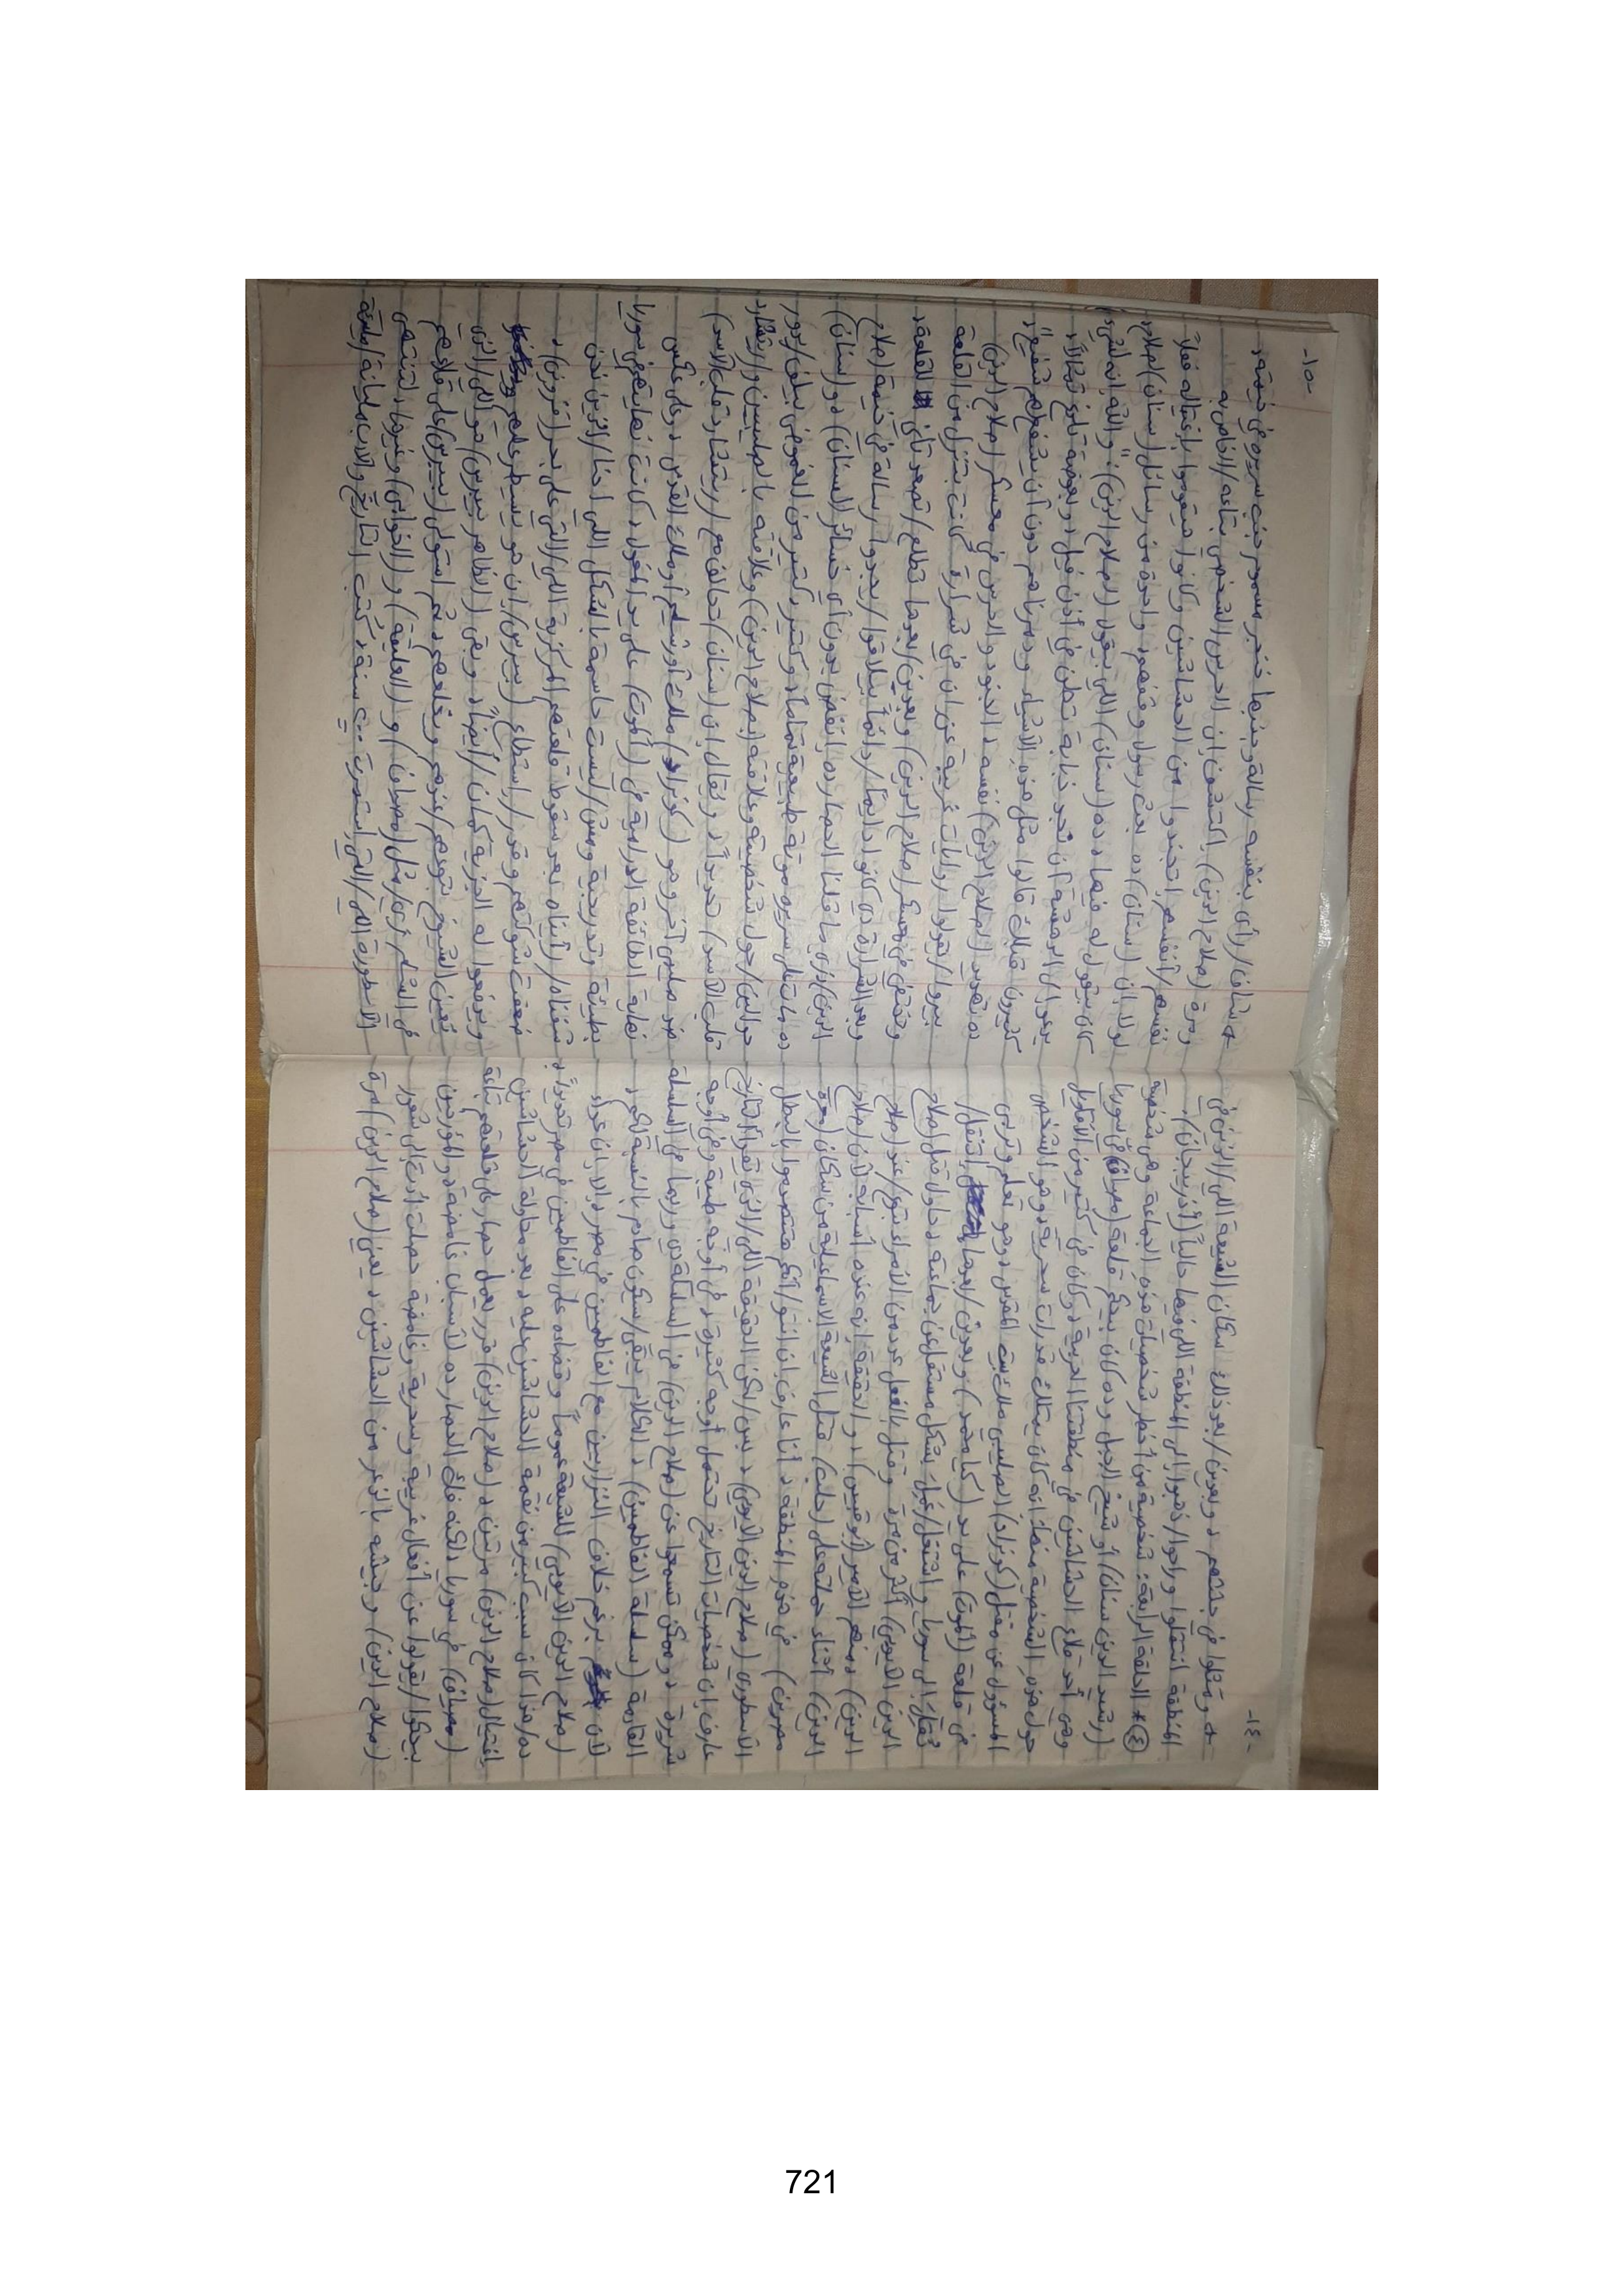 -١٤-
* وقتلوا في جبلهم، وبعدين/بعد ذلك سكان الشيعة اللي/الذين في
المنطقة انتقلوا وراحوا/ذهبوا إلى المنطقة اللي منها حالياً (أذربيجان).
④ * الحلقة الرابعة: شخصية من أخطر شخصيات هذه الجماعة وهي شخصية
(رشيد الدين سنان) أو شيخ الجبل وده كان بيحكم قلعة (مصياف) في سوريا
وهي أحد قلاع الحشاشين في منطقتنا العربية، وكان في كتير من الأقاويل
حول هذه الشخصية منها: أنه كان يمتلك قدرات سحرية، وهو الشخص
المسؤول عن مقتل (كونراد) الصليبي ملك بيت المقدس، وهو تعلم وتربى
في قلعة (ألموت) على يد (كيا محمد) وبعدين/بعدها انتقل/
نُقِلَ إلى سوريا واشتغل/عَمِلَ بشكل مستقل عن جماعته، حاول قتل (صلاح
الدين الأيوبي) أكثر من مرة، وقتل بالفعل عدد من الأمراء بتوع/عند (صلاح
الدين) ومنهم الأمير (أبو قبيس)، والحقيقة إنه عنده أسبابه لأن (صلاح
الدين) أثناء حملته على (حلب) قتل الشيعة الإسماعيلية من سكان (معرة
مصرين) في هذه المنطقة، أنا عارف إن انتوا/أنتم هتنصدموا بالبطل
الأسطوري (صلاح الدين الأيوبي)، بس/لكن الحقيقة اللي/الذي يقرأ التاريخ
عارف إن شخصيات التاريخ تحتمل أوجه كثيرة، في أوجه طيبة وفي أوجه
شريرة، وممكن تسمعوا عن (صلاح الدين) في السلسلة دي وربما في السلسلة
القادمة (سلسلة الفاطميين)، الكلام يبقى/سيكون صادم بالنسبة لكم،
لأن برغم خلاف النزاريين مع الفاطميين في مصر، إلا إن عداء
(صلاح الدين الأيوبي) للشيعة عموماً وقضاءه على الفاطميين في مصر تحديداً،
ده/هذا كان سبب كبير من نقمة الحشاشين عليه، بعد محاولة الحشاشين
اغتيال (صلاح الدين) مرتين، (صلاح الدين) قرر يعمل حصار على قلعتهم بتاعة
(مصياف) في سوريا، لكنه فك الحصار ده لأسباب غامضة، والمؤرخين
بيحكوا/يقولوا عن أفعال غريبة وسحرية وغامضة حصلت أدت إلى شعور
(صلاح الدين) وجيشه بالذعر من الحشاشين، يعني (صلاح الدين) مرة
-١٥-
* شاف/رأى بنفسه رسالة وجنبها خنجر مسموم جنب سريره في خيمته،
ومرة (صلاح الدين) اكتشف إن الحرس الشخصي بتاعه/الخاص به
نفسهم/أنفسهم اتجندوا من الحشاشين وكانوا هيقوموا باغتياله فعلاً
لولا إن (سنان) ده بعت رسول وقفهم، واحدة من رسائل (سنان) لصلاح
كان بيقول له فيها، ده (سنان) اللي بيقول (لصلاح الدين): "والله إنه لشيء
يدعو إلى الدهشة أن نجد ذبابة تطن في أذن فيل، وبعوضة تلدغ تمثالاً،
كثيرون قبلك قالوا مثل هذه الأشياء ودمرناهم دون أن يشفع لهم شفيع"،
ده تهديد (لصلاح الدين) نفسه، الجنود والحرس في معسكر (صلاح الدين)
بيرووا/يقولوا روايات غريبة عن إن في شرارة كانت بتنزل من القلعة
وتختفي في معسكر (صلاح الدين) وبعدين/بعدها تطلع/تصعد تاني القلعة،
وبعد الشرارة دي كانوا دايماً/دائماً بيلاقوا/يجدوا رسالة في خيمة (صلاح
الدين)، زي ما قلنا الحصار ده اتفض بدون أي خسائر (لسنان)، و(سنان)
ده مات على سريره موتة طبيعية تماماً، وكتير وكتير من الغموض بيلف/يدور
حوالين/حول شخصيته وعلاقته (بصلاح الدين) وعلاقته بالصليبيين و(ريتشارد
قلب الأسد) تحديداً، ويقال إن (سنان) تحالف مع (ريتشارد قلب الأسد)
ضد صليبي آخر وهو (كونراد) ملك أورشليم أو ملك القدس، وعلى عكس
نهاية الطائفة الدرامية في (ألموت) على يد المغول، كانت نهايتهم في سوريا
بطيئة وتدريجية ومش/ليست حاسمة بالشكل اللي احنا/الذي نحن
شفناه/رأيناه بعد سقوط قلعتهم المركزية اللي/التي على بحر (قزوين)،
ضعفت شوكتهم وقدر/استطاع (بيبرس) إن هو يسيطر عليهم
ويدفعوا له الجزية كمان/أيضاً، وبقى (الظاهر بيبرس) هو اللي/الذي
يُعيّن الشيوخ بتوعهم/عندهم ويخلعهم، ثم استولى (بيبرس) على قلاعهم
في الشام زي/مثل (مصياف) و(العليقة) و(الخوابي) وغيرها، لتنتهي
الأسطورة اللي/التي استمرت ٢٠٠ سنة، كتب التاريخ والأدب مليانة/مليئة
721